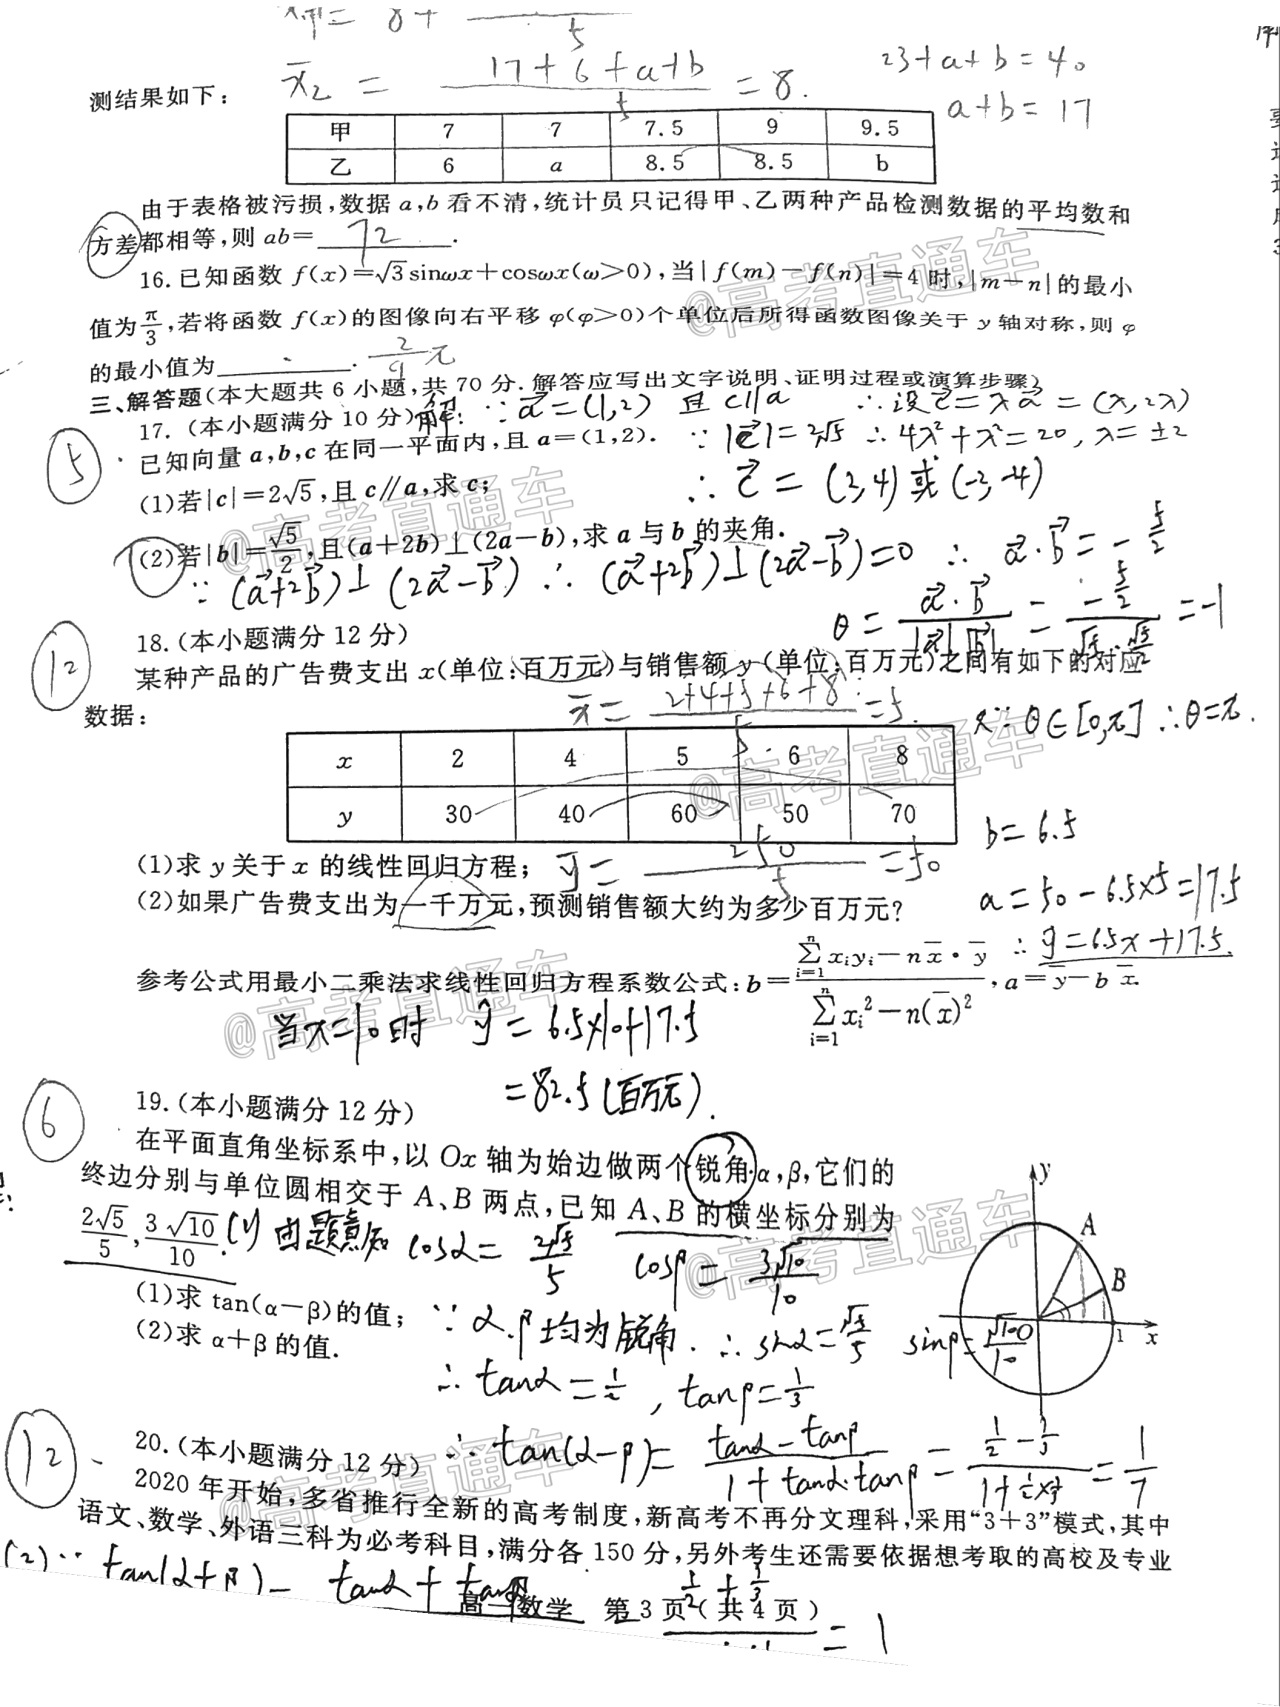 x̄₂ = (17+6+a+b)/5 = 8.
23+a+b=40
a+b=17
测结果如下:
甲 7 7 7.5 9 9.5
乙 6 a 8.5 8.5 b
由于表格被污损,数据 a,b 看不清,统计员只记得甲、乙两种产品检测数据的平均数和
方差都相等,则 ab= 72 .
16.已知函数 f(x)=√3sinωx+cosωx(ω>0),当|f(m)-f(n)|=4时,|m-n|的最小
值为π/3,若将函数 f(x)的图像向右平移 φ(φ>0)个单位后所得函数图像关于 y 轴对称,则 φ
的最小值为 . 2/9 π
三、解答题(本大题共 6 小题,共 70 分.解答应写出文字说明、证明过程或演算步骤)
17.(本小题满分 10 分) 解: ∵a⃗=(1,2) 且 c∥a ∴设c⃗=λa⃗=(λ,2λ)
⑤
已知向量 a,b,c 在同一平面内,且 a=(1,2). ∵|c⃗|=2√5 ∴4λ²+λ²=20, λ=±2
(1)若|c|=2√5,且 c∥a,求 c; ∴ c⃗=(2,4)或(-2,-4)
(2)若|b|=√5/2,且(a+2b)⊥(2a-b),求 a 与 b 的夹角.
∵(a⃗+2b⃗)⊥(2a⃗-b⃗) ∴(a⃗+2b⃗)⊥(2a⃗-b⃗)=0 ∴ a⃗·b⃗=-5/2
θ=a⃗·b⃗/|a⃗||b⃗|=(-5/2)/(√5·√5/2)=-1
18.(本小题满分 12 分)
12
某种产品的广告费支出 x(单位:百万元)与销售额 y(单位:百万元)之间有如下的对应
数据: x̄=(2+4+5+6+8)/5=5. 又∵θ∈[0,π] ∴θ=π.
x 2 4 5 6 8
y 30 40 60 50 70
b=6.5
(1)求 y 关于 x 的线性回归方程; ȳ=250/5=50
a=50-6.5×5=17.5
(2)如果广告费支出为一千万元,预测销售额大约为多少百万元?
∴ ŷ=6.5x+17.5.
参考公式用最小二乘法求线性回归方程系数公式:b=(∑ⁿᵢ₌₁xᵢyᵢ-nx̄·ȳ)/(∑ⁿᵢ₌₁xᵢ²-n(x̄)²),a=ȳ-bx̄.
当x=10时 ŷ=6.5×10+17.5
=82.5(百万元).
19.(本小题满分 12 分)
⑥
在平面直角坐标系中,以 Ox 轴为始边做两个锐角α,β,它们的
终边分别与单位圆相交于 A、B 两点,已知 A、B 的横坐标分别为
2√5/5,3√10/10. (1)由题意知 cosα=2√5/5 cosβ=3√10/10
y A B O 1 x
(1)求 tan(α-β)的值; ∵α,β均为锐角. ∴sinα=√5/5 sinβ=√10/10
(2)求 α+β 的值.
∴tanα=1/2, tanβ=1/3
20.(本小题满分 12 分) ∴tan(α-β)=(tanα-tanβ)/(1+tanα·tanβ)=(1/2-1/3)/(1+1/2×1/3)=1/7
12
2020 年开始,多省推行全新的高考制度,新高考不再分文理科,采用“3+3”模式,其中
语文、数学、外语三科为必考科目,满分各 150 分,另外考生还需要依据想考取的高校及专业
(2)∵ tan(α+β)= tanα+tanβ 1/2+1/3 =1
高一数学 第 3 页(共 4 页)
@高考直通车
@高考直通车
@高考直通车
@高考直通车
@高考直通车
@高考直通车